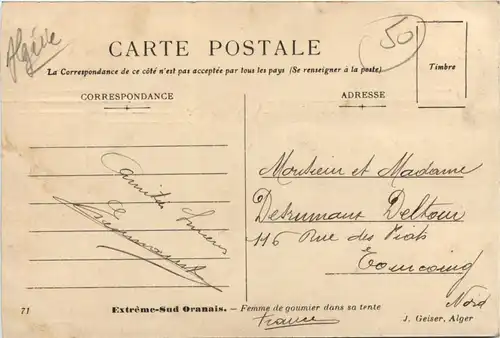 Algérie
50
CARTE POSTALE
La Correspondance de ce côté n'est pas acceptée par tous les pays (Se renseigner à la poste)
Timbre
CORRESPONDANCE
ADRESSE
Amitiés
Monsieur et Madame
Desrumaux Deltour
116 Rue des Piats
Tourcoing
Nord
71
Extrême-Sud Oranais. – Femme de goumier dans sa tente
France
J. Geiser, Alger